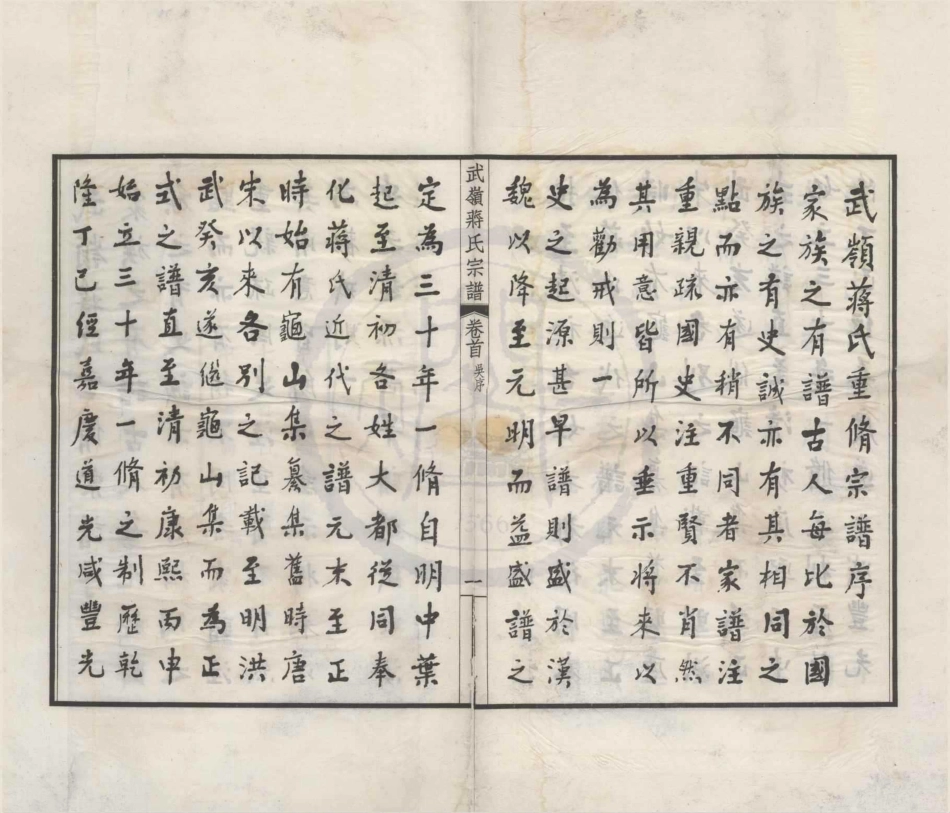 武嶺蔣氏重脩宗譜序
家族之有譜古人每比於國
族之有史誠亦有其相同之
點而亦有稍不同者家譜注
重親疏國史注重賢不肖然
其用意皆所以垂示將來以
為勸戒則一
史之起源甚早譜則盛於漢
魏以降至元明而益盛譜之
武嶺蔣氏宗譜
卷首
吳序
一
定為三十年一脩自明中葉
起至清初各姓大都從同奉
化蔣氏近代之譜元末至正
時始有龜山集纂集舊時唐
宋以來各別之記載至明洪
武癸亥遂繼龜山集而為正
式之譜直至清初康熙丙申
始立三十年一脩之制歷乾
隆丁巳經嘉慶道光咸豐光